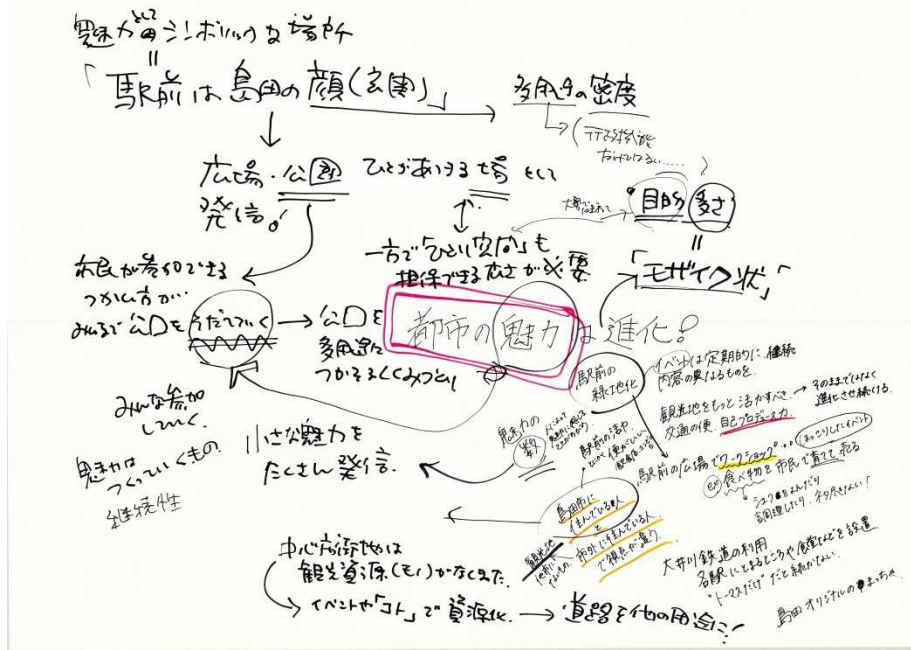 魅力としてシンボリックな場所
=
「駅前は島田の顔(玄関)」
多用途の密度
広場・公園
発信!
ひとがあつまる場として
目的 多さ
=
「モザイク状」
一方で「ひとり空間」も
担保できる広さが必要
市民が参加できる
つかい方が…
みんなで公口をそだてていく
公口を
多用途に
つかえるしくみづくり
都市の魅力は進化!
みんな参加
していく。
魅力は
つくっていくもの
継続性
小さな魅力を
たくさん発信.
魅力の
数
駅前の
緑地化
イベントは定期的に、継続
内容の異なるものを.
観光地をもっと活かすべき.
交通の便.自己プロデュース力.
そのままではなく
進化させ続ける.
駅前の広場でワークショップ…
ほっこりしたイベント
食べ物を市民で育てて売る
調理したり、
島田市に
住んでいる人
と
市外に住んでいる人
で視点が違う.
中心市街地は
観光資源(モノ)がなくまた.
イベントや「コト」で資源化.
道路を他の用途に!
大井川鉄道の利用
各駅にとまるところや食堂などを設置
"トーマスだけ"だと続かない.
島田オリジナルのまっちゃ.